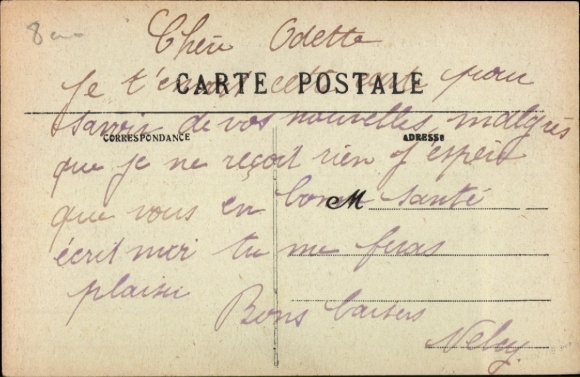 8
Chère Odette
Je t'envoie cette carte pour
CARTE POSTALE
savoir de vos nouvelles malgrès
CORRESPONDANCE
ADRESSE
que je ne reçoit rien j'espère
que vous en bonne santé
M
écrit moi tu me feras
plaisir
Bons baisers
Nelly